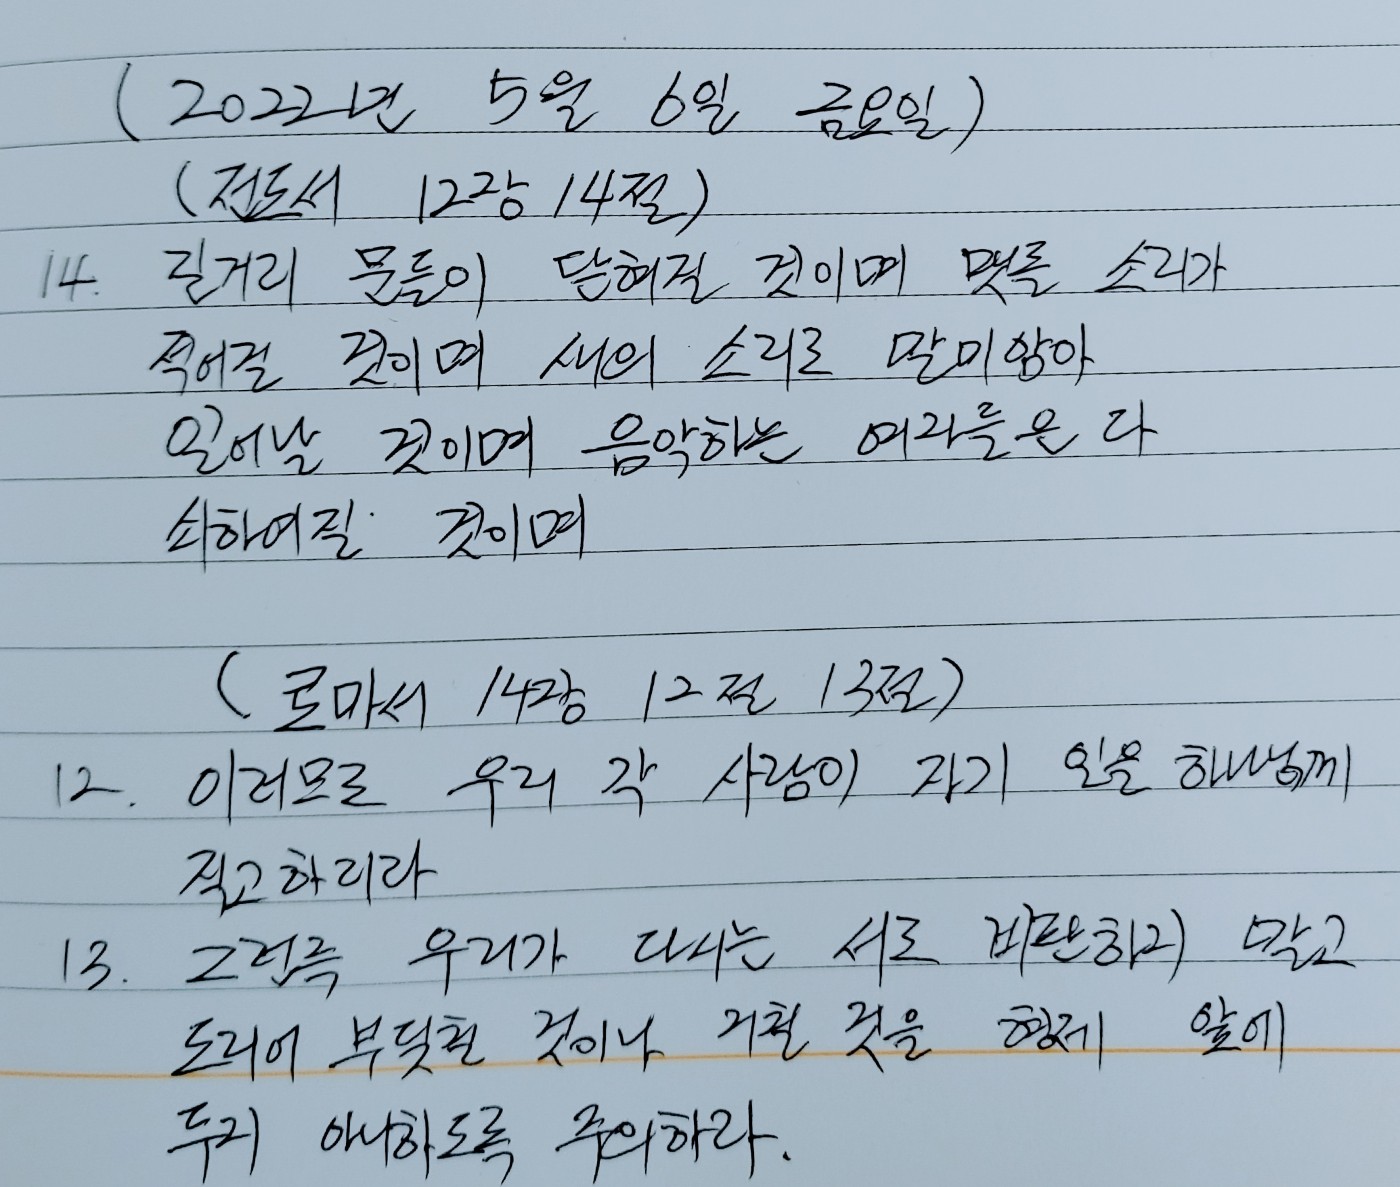 (2022년 5월 6일 금요일)
(전도서 12장 14절)
14. 길거리 문들이 닫혀질 것이며 맷돌 소리가
적어질 것이며 새의 소리로 말미암아
일어날 것이며 음악하는 여자들은 다
쇠하여질 것이며
(로마서 14장 12절 13절)
12. 이러므로 우리 각 사람이 자기 일을 하나님께
직고하리라
13. 그런즉 우리가 다시는 서로 비판하지 말고
도리어 부딪칠 것이나 거칠 것을 형제 앞에
두지 아니하도록 주의하라.